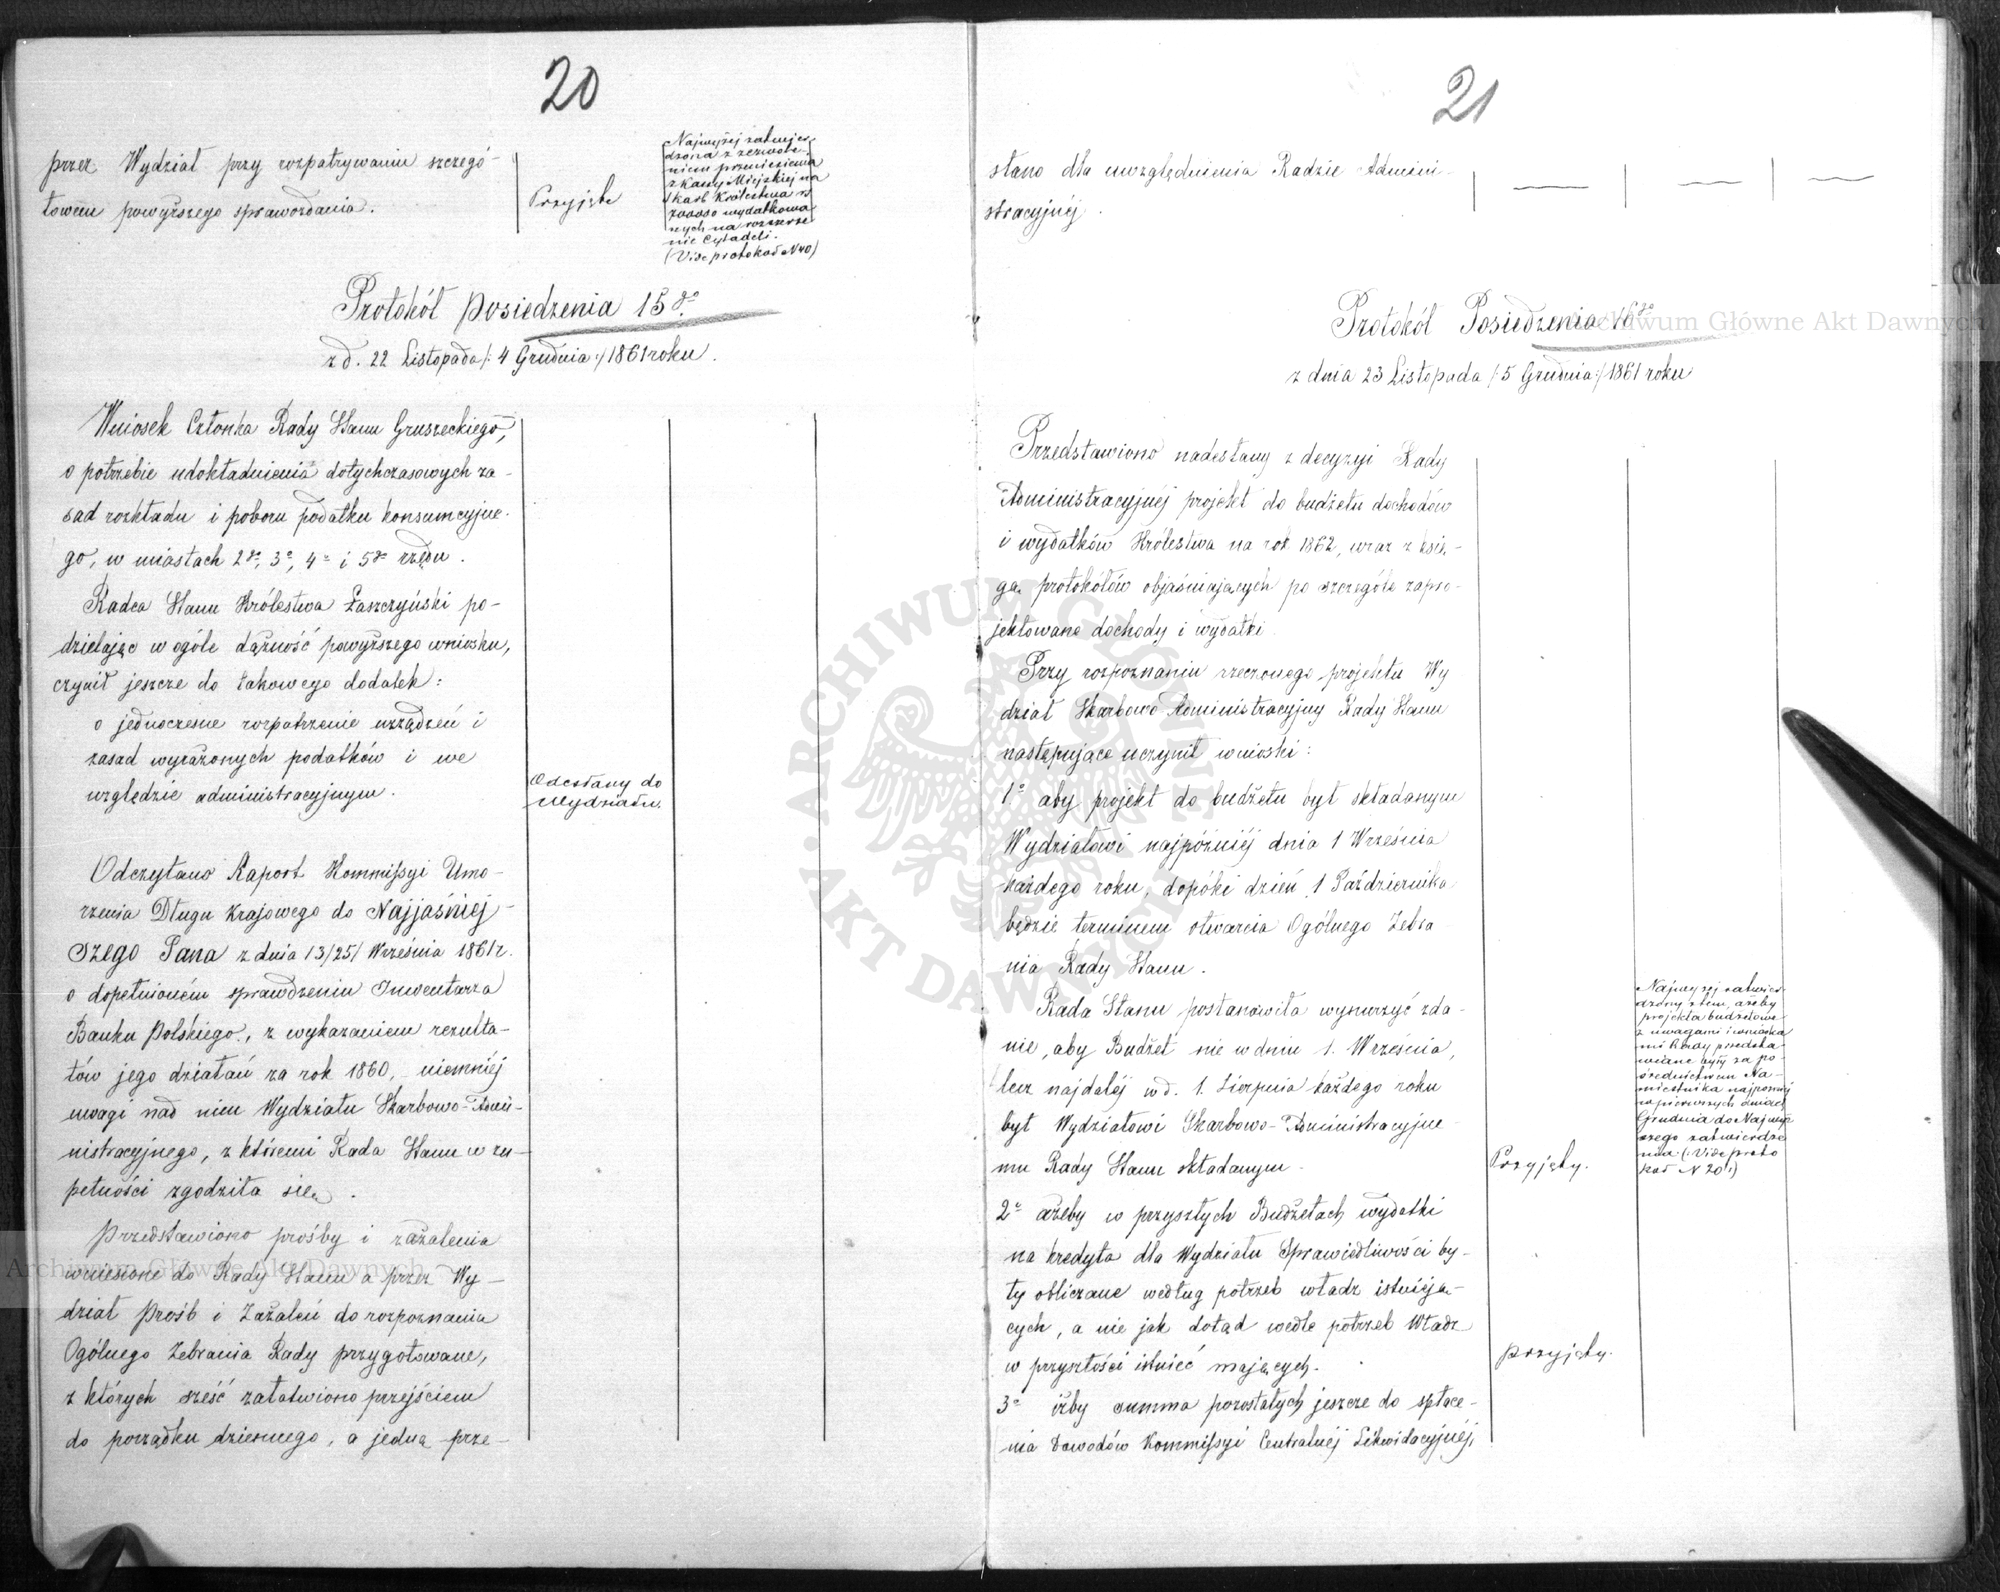 20
przez Wydział przy rozpatrywaniu szczegó-
łowem powyższego sprawozdania.
Przyjęte
Najwyżej zatwier
dzona z zezwole-
niem przeniesienia
z Kassy Miejskiej na
Skarb Królestwa rs
200000 wydatkowa
nych na rozszerze
nie Cytadeli.
(Vide protokół N 40)
Protokół Posiedzenia 15go.
z d. 22 Listopada /: 4 Grudnia :/ 1861 roku.
Wniosek Członka Rady Stanu Gruszeckiego,
o potrzebie udokładnienia dotychczasowych za-
sad rozkładu i poboru podatku konsumcyjne-
go, w miastach 2go, 3o, 4o i 5go rzędu.
Radca Stanu Królestwa Łaszczyński po-
dzielając w ogóle dążność powyższego wniosku,
czynił jeszcze do takowego dodatek:
o jednoczesne rozpatrzenie urządzeń i
zasad wyrażonych podatków i we
względzie administracyjnym.
Odesłany do
Wydziału.
Odczytano Raport Kommissyi Umo-
rzenia Długu Krajowego do Najjaśniej-
szego Pana z dnia 13/25/ Września 1861 r.
o dopełnioném sprawdzeniu Inwentarza
Banku Polskiego, z wykazaniem rezulta-
tów jego działań za rok 1860, niemniéj
uwagi nad niem Wydziału Skarbowo-Admi-
nistracyjnego, z któremi Rada Stanu w zu-
pełności zgodziła się.
Przedstawiono prośby i zażalenia
wniesione do Rady Stanu a przez Wy-
dział Próśb i Zażaleń do rozpoznania
Ogólnego Zebrania Rady przygotowane,
z których sześć załatwiono przejściem
do porządku dziennego, a jedną prze-
21
słano dla uwzględnienia Radzie Admini-
stracyjnéj.
Protokół Posiedzenia 16go
z dnia 23 Listopada /: 5 Grudnia :/ 1861 roku
Przedstawiono nadesłany z decyzyi Rady
Administracyjnéj projekt do budżetu dochodów
i wydatków Królestwa na rok 1862, wraz z księ-
gą protokółów objaśniających po szczególe zapro-
jektowane dochody i wydatki.
Przy rozpoznaniu rzeczonego projektu Wy
dział Skarbowo Administracyjny Rady Stanu
następujące uczynił wnioski:
1o aby projekt do budżetu był składanym
Wydziałowi najpóźniéj dnia 1 Września
każdego roku, dopóki dzień 1 Października
będzie terminem otwarcia Ogólnego Zebra-
nia Rady Stanu.
Rada Stanu postanowiła wynurzyć zda-
nie, aby Budżet nie w dniu 1. Września,
lecz najdaléj w d. 1. Sierpnia każdego roku
był Wydziałowi Skarbowo-Administracyjne-
mu Rady Stanu składanym.
Przyjęty.
Najwyżej zatwier
dzony z tem, ażeby
projekta budżetowe
z uwagami i wnioska
mi Rady przedsta
wiane były za po-
średnictwem Na-
miestnika najpóźniéj
w pierwszych dniach
Grudnia do Najwyż
szego zatwierdze
nia. (Vide proto
kół N 20.)
2o ażeby w przyszłych Budżetach wydatki
na kredyta dla Wydziału Sprawiedliwości by-
ły obliczane według potrzeb władz istnieją-
cych, a nie jak dotąd wedle potrzeb Władz
w przyszłości istnieć mających.
Przyjęty.
3o iżby summa pozostałych jeszcze do spłace-
nia dowodów Kommissyi Centralnéj Likwidacyjnéj,
Archiwum Główne Akt Dawnych
Archiwum Główne Akt Dawnych
ARCHIWUM GŁÓWNE AKT DAWNYCH